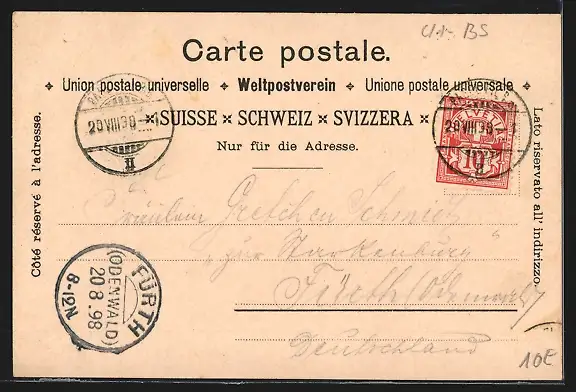 Ch. BS
Carte postale.
Union postale universelle ❖ Weltpostverein ❖ Unione postale universale
SUISSE × SCHWEIZ × SVIZZERA
Nur für die Adresse.
Côté réservé à l'adresse.
Lato riservato all' indirizzo.
20 VIII 98
II
20 VIII 98
II
HELVETIA
10
Fräulein Gretchen Schmidt
zur Starkenburg
Fürth (Odenwald)
Deutschland
FÜRTH
(ODENWALD)
20 8.98
8-12N
10E